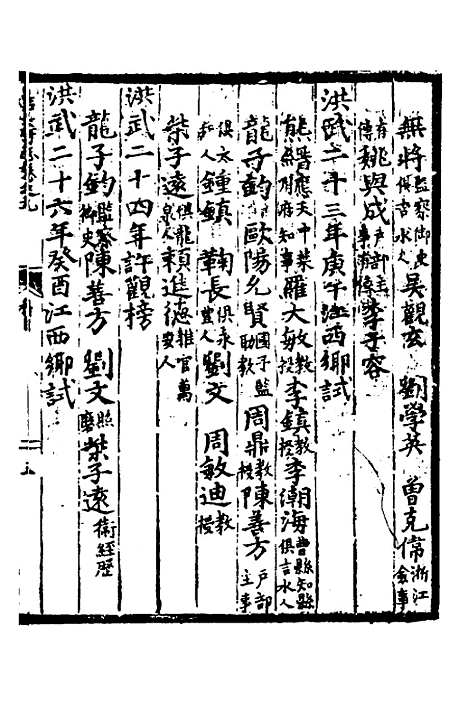 無將監察御史俱吉水人吳觀玄 劉學英 曾克偉浙江僉事
有傳姚與成戶部主事有傳李子容
洪武二十三年庚午江西鄉試
熊縉應天中某府知事羅大敏教授李鎮教授李潮海曹縣知縣俱吉水人
龍子鈞歐陽允賢國子監助教周鼎教授陳善方戶部主事
俱太和人鍾鎮 鞠長俱永豐人劉文 周敏迪教授
柴子遠俱龍泉人賴進德推官萬安人
洪武二十四年許觀榜
龍子鈞監察御史陳善方 劉文照磨柴子遠衛經歷
洪武二十六年癸酉江西鄉試